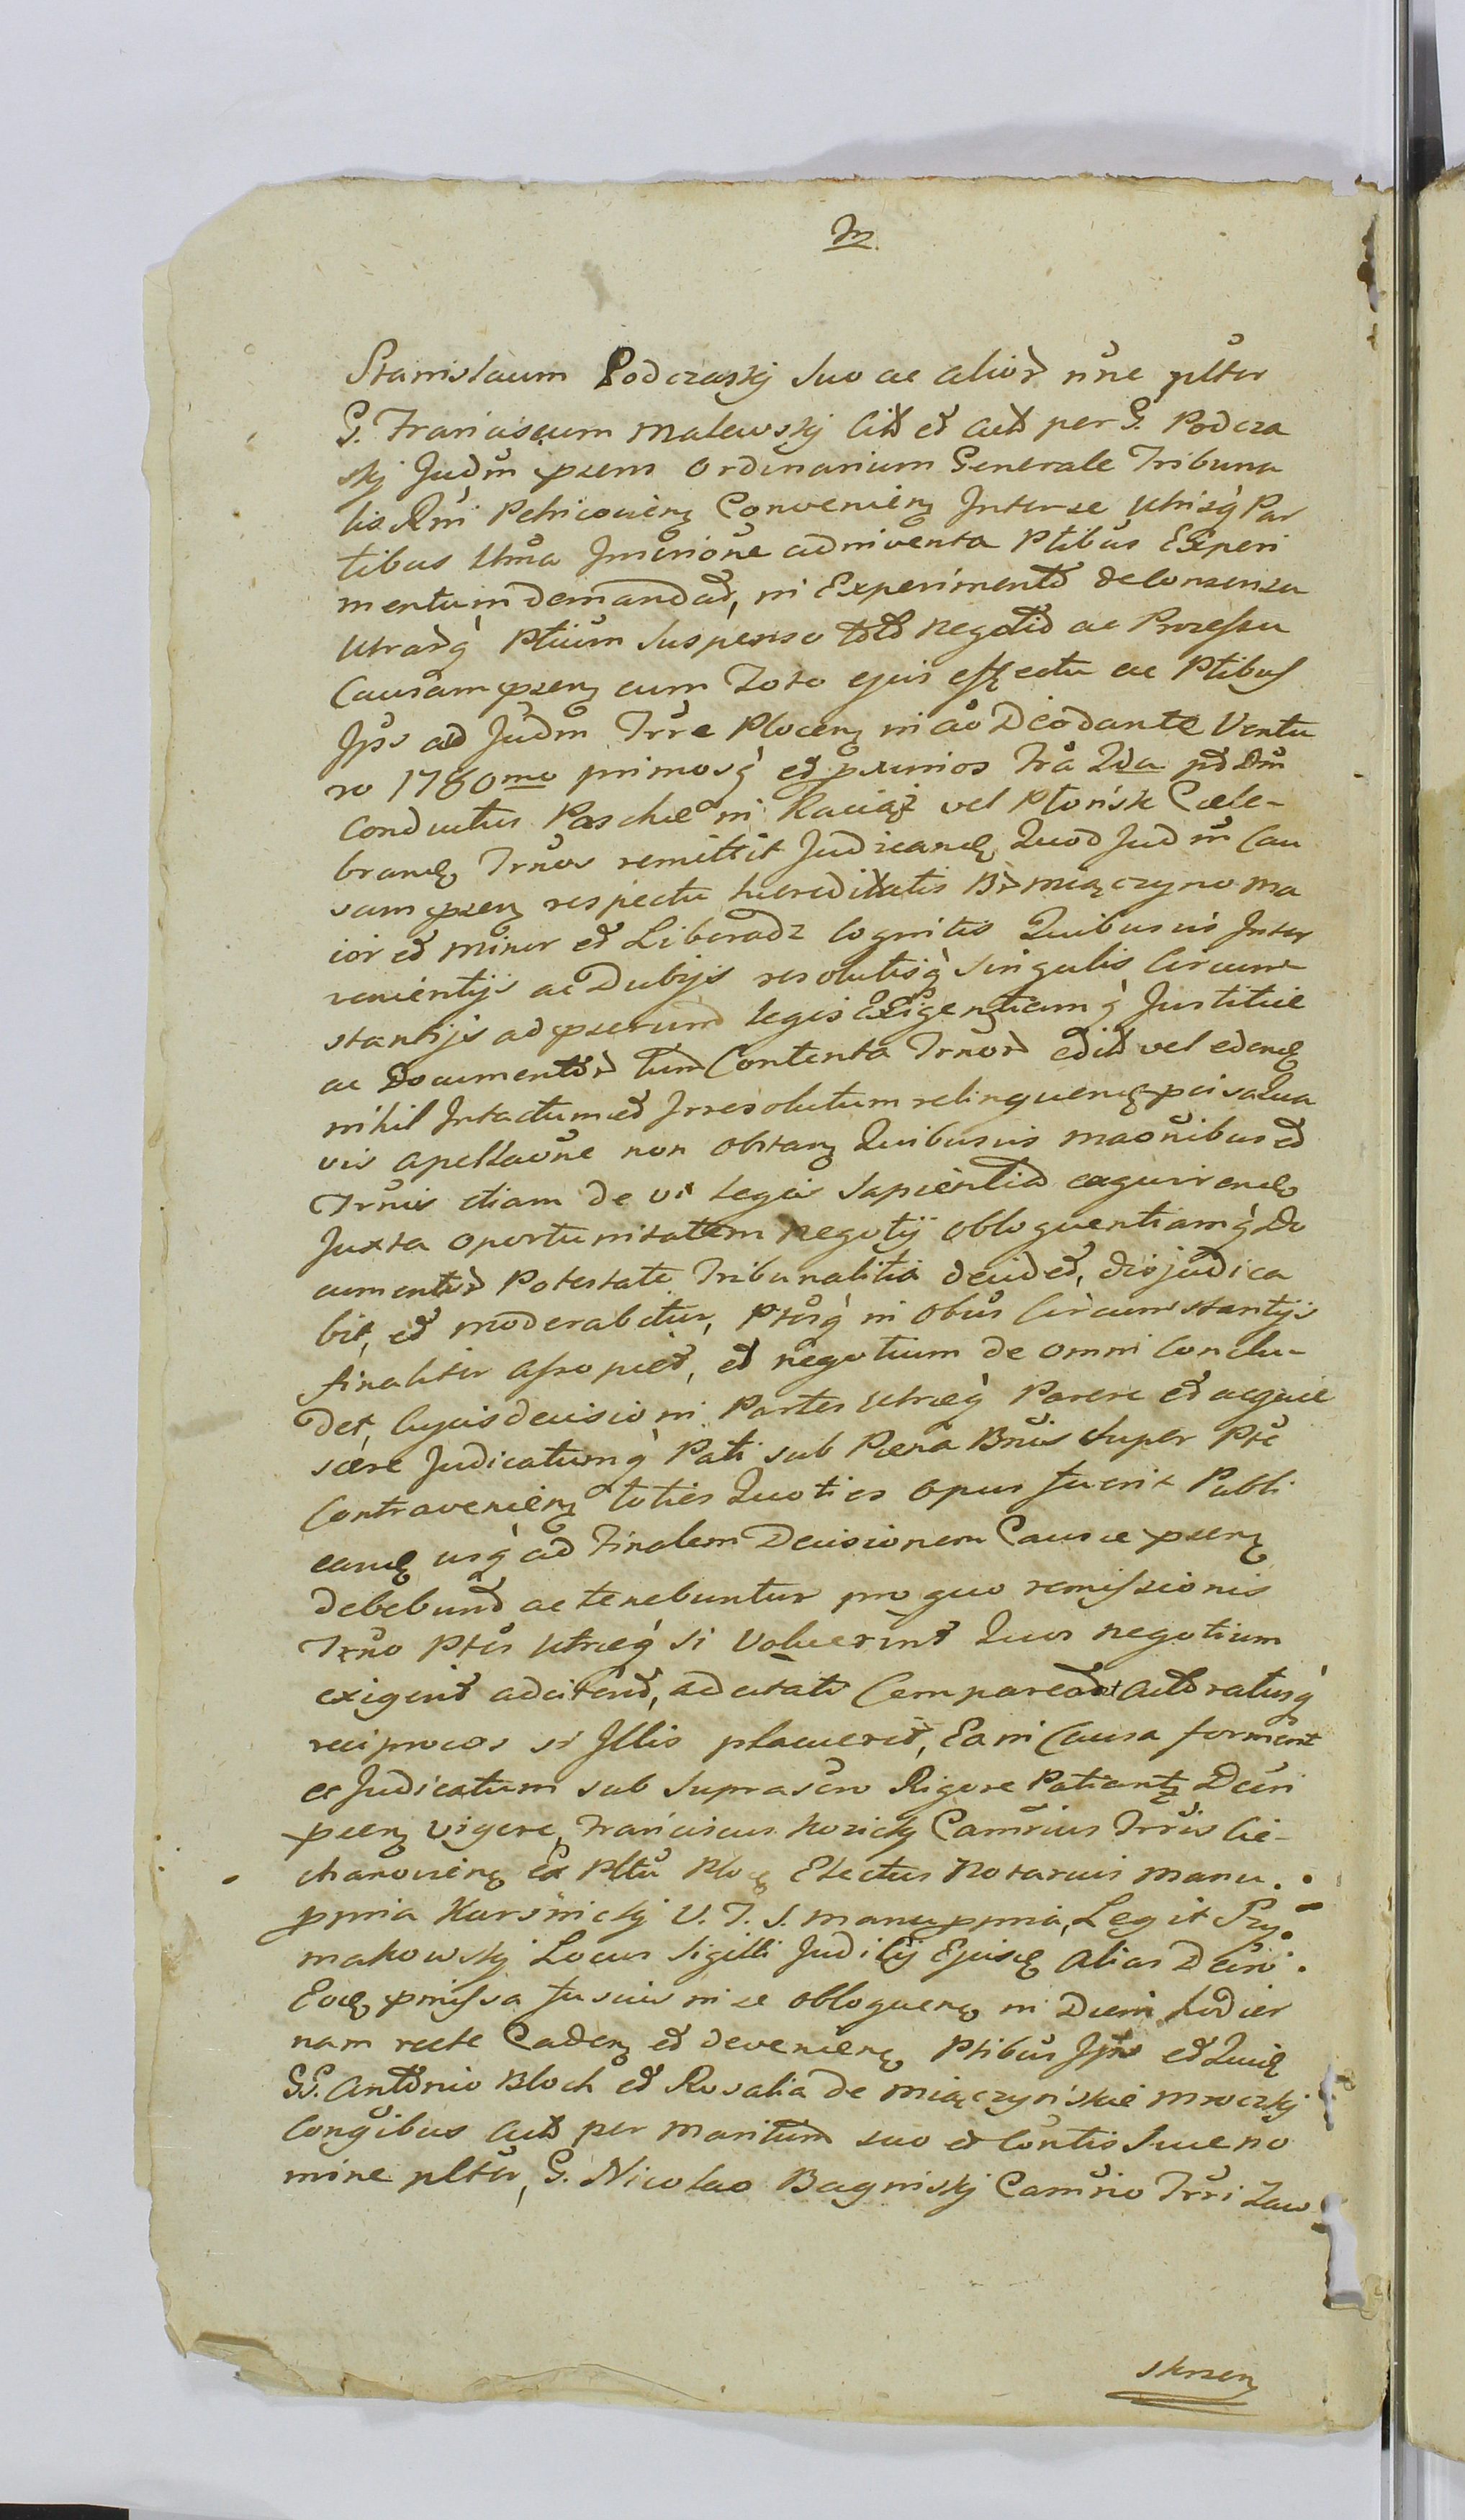 m
Stanislaum Podczaskj suo ac alior nõe pltur
G. Franciscum Malewskj Citt et actt per G. Podcza
skj Judm psens Ordinarium Generale Tribuna
lis Rni Petricovien Convenien Inter se Utrisq Par
tibus
mentum demandat, in Experimento de Consensu
Utrarq Ptium Suspenso toto Negotio ac Processu
Causam psen cum Toto ejus effectu ac Ptibus
Ipss ad Judm Trre Plocen in ao Deo dante Ventu
ro 1780mo primosq et prmios Tra 2da pst Dm
Conductus Paschae in Raciąż vel Płońsk Cele-
brand Trnos remittit Judicand, Quod Judm Cau
sam psen respectu haereditatis Br Miączyno Ma
ior et Minor et Liberadz Cognitis Quibusvis Inter
venientijs ac Dubijs resolutisq Singulis Circum
stantijs ad pserund legis Exigentiamq Justitiae
ac Documentor tum Contenta Trnor edit vel edend
nihil Intactum et Irresolutum relinquend
vis apellaone non obstan Quibusvis maonibus et
Trnis etiam de vi legis Sapientia exquirend
Juxta oportunitatem Negotij obloquentiamq Do
cumentor Potestate Tribunalitia decidet, disjudica
bit, et moderabitur, Ptesq in obus Circumstantijs
finaliter asropiet, et negotium de omni Conclu-
det, Cujus decisioni Partes Utraeq Parere et acquie
scere Judicatumq Pati sub Paena Bnis super Pte
Contravenien toties Quoties opus fuerit Publi
cand usq ad Finalem Decisionem Causae psen
debebunt ac tenebuntur pro quo remissionis
Trno Ptes Utraeq si Voluerint Quos negotium
exigerit adcitent, adcitati Compareant actoratusq
reciprocos si Illis placuerit, Ea in Causa forment
et Judicatum sub suprascro Rigore Patiantr Decri
psen vigore, Franciscus Kozicky Camrius Trris Cie-
chanovien Ex Pltu Ploc Electus Notarius manu
ppria Karśnickj V. T. S. manu ppria, Legit Przy
makowskj Locus Sigilli Judicij Ejusd Alias Decro
Eoq pmissa fusius in se obloquen in Diem hodier
nam recte Caden et devenien Ptibus Ips et Quid
GG. Antonio Bloch et Rosalia de Miączyńskie Mroczkj
Congibus actt per Maritum suo et Contis Suae no
mine pltur, G. Nicolao Bagniskj Camrio Trri Zaw
skrzen